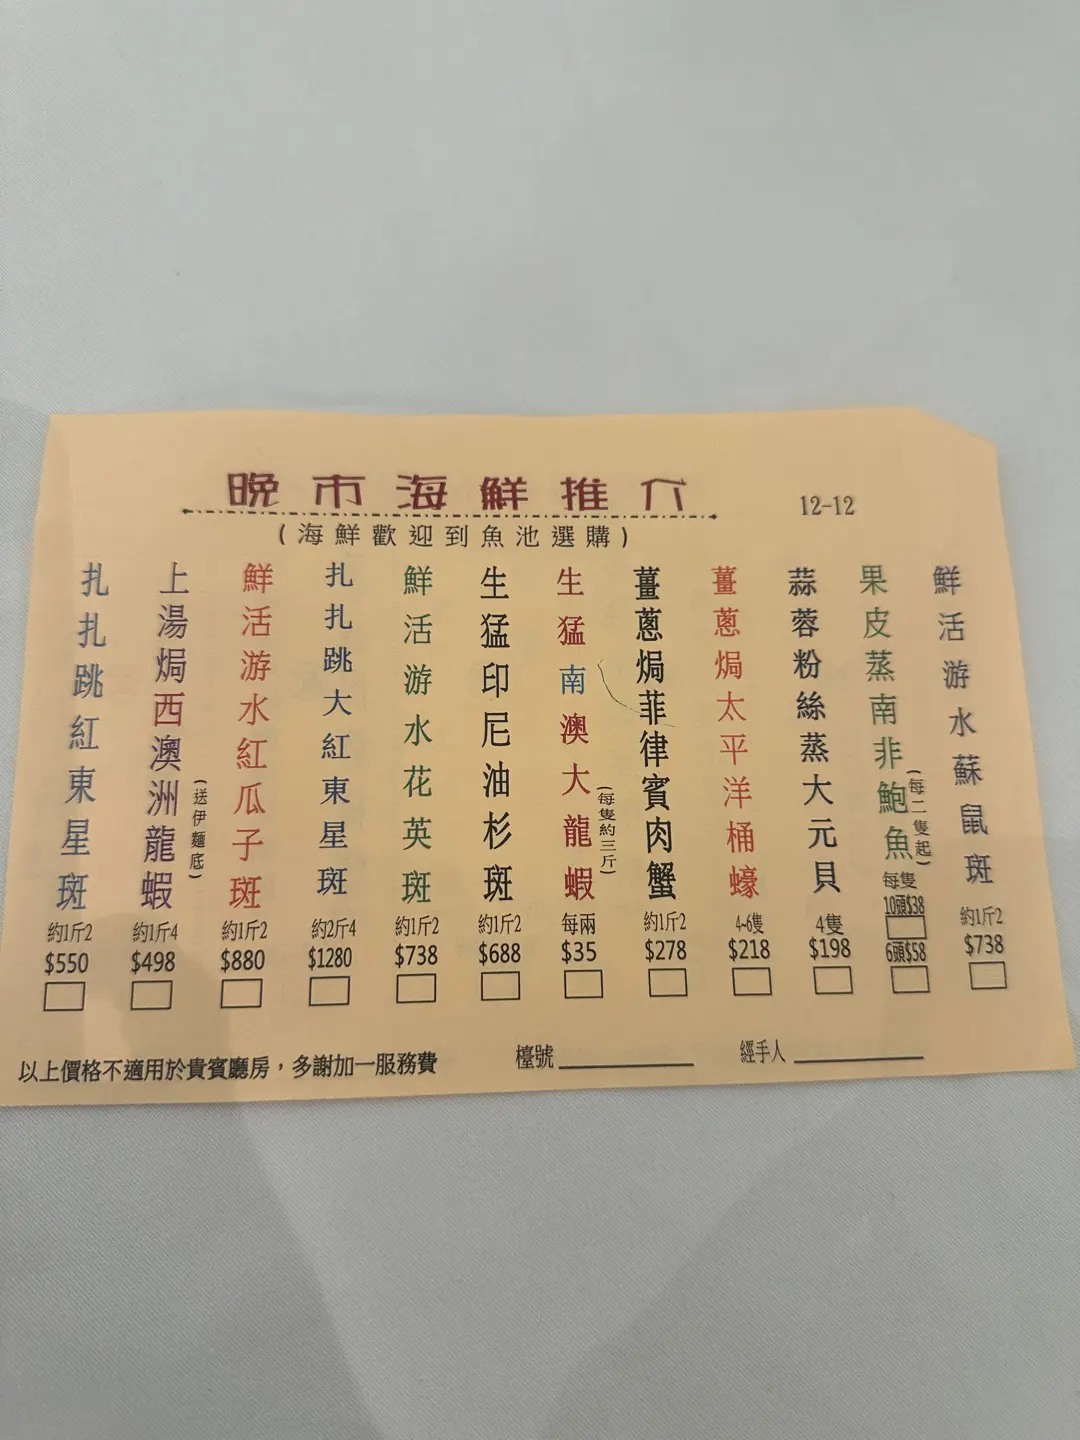 晚市海鮮推介
12-12
(海鮮歡迎到魚池選購)
鮮活游水蘇鼠斑
約1斤2
$738
果皮蒸南非鮑魚
(每二隻起)
每隻
10頭$38
6頭$58
蒜蓉粉絲蒸大元貝
4隻
$198
薑蔥焗太平洋桶蠔
4-6隻
$218
薑蔥焗菲律賓肉蟹
約1斤2
$278
生猛南澳大龍蝦
(每隻約三斤)
每兩
$35
生猛印尼油杉斑
約1斤2
$688
鮮活游水花英斑
約1斤2
$738
扎扎跳大紅東星斑
約2斤4
$1280
鮮活游水紅瓜子斑
約1斤2
$880
上湯焗西澳洲龍蝦
(送伊麵底)
約1斤4
$498
扎扎跳紅東星斑
約1斤2
$550
以上價格不適用於貴賓廳房，多謝加一服務費
檯號
經手人